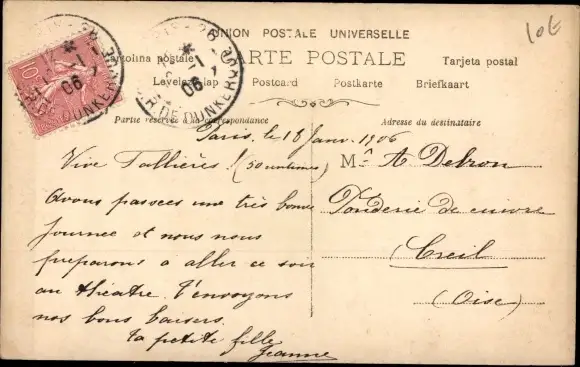 10€
UNION POSTALE UNIVERSELLE
CARTE POSTALE
Cartolina postale
Tarjeta postal
Levelezőlap Postcard Postkarte Briefkaart
Partie réservée à la correspondance
Adresse du destinataire
10
06
R. DE DUNKERQUE
06
Paris, le 18 Janv. 1906
Vive Fallières! (50 centimes)
Avons passées une très bonne
journée et nous nous
preparons à aller ce soir
au théatre. T'envoyons
nos bons baisers.
Ta petite fille
Jeanne
Mr A Debron
Fonderie de cuivre
Creil
(Oise)